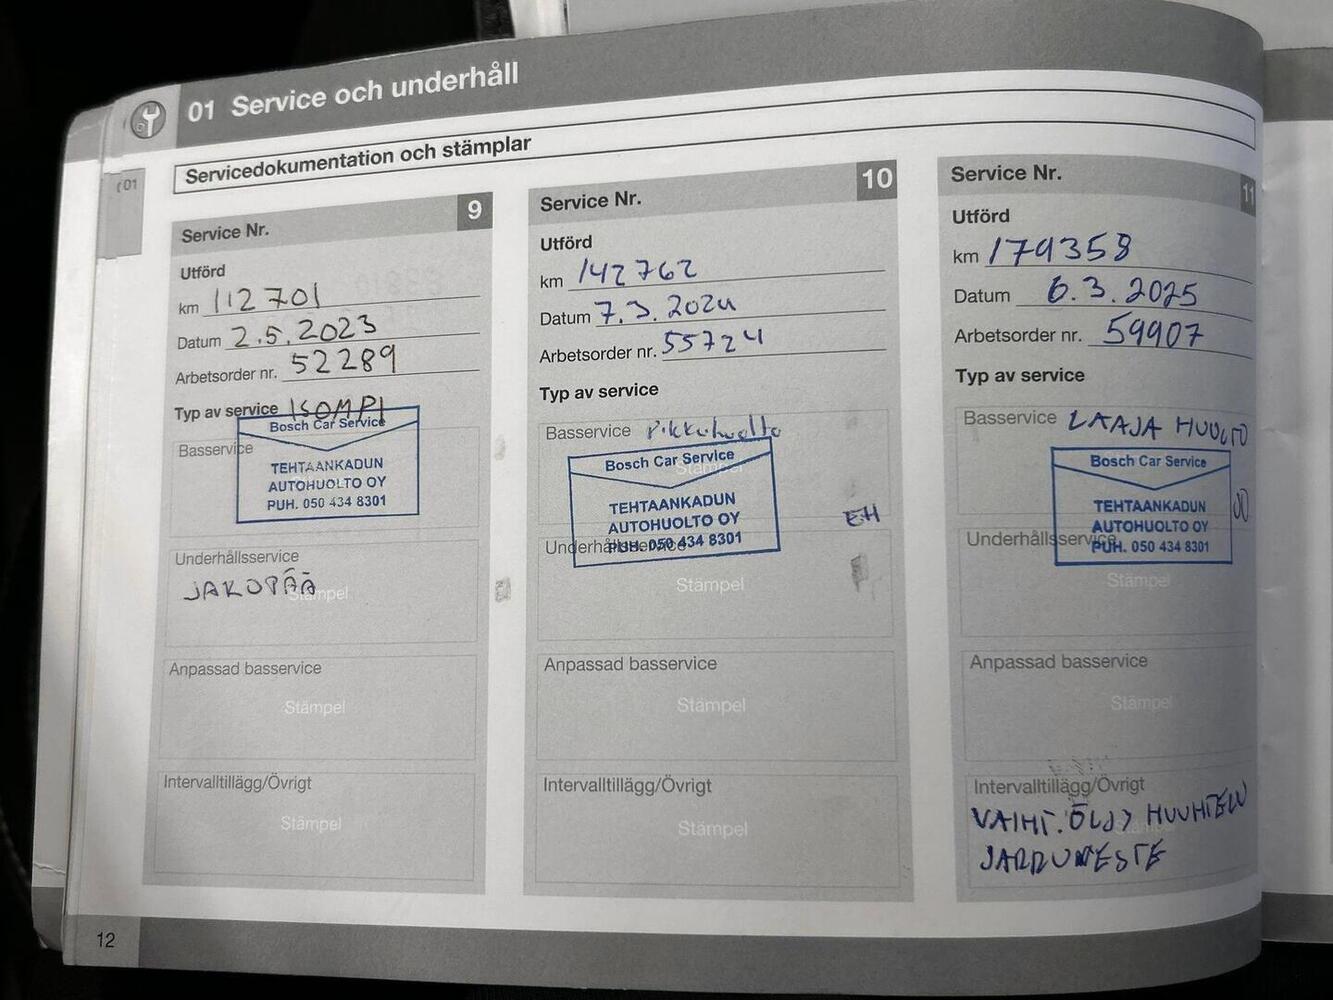 01 Service och underhåll
Servicedokumentation och stämplar
01
Service Nr. 9
Utförd
km 112 701
Datum 2.5.2023
Arbetsorder nr. 52289
Typ av service ISOMPI
Basservice
Bosch Car Service
TEHTAANKADUN
AUTOHUOLTO OY
PUH. 050 434 8301
Underhållsservice
JAKOPÄÄ
Stämpel
Anpassad basservice
Stämpel
Intervalltillägg/Övrigt
Stämpel
Service Nr. 10
Utförd
km 142762
Datum 7.3.2024
Arbetsorder nr. 55724
Typ av service
Basservice Pikkuhuolto
Stämpel
Bosch Car Service
TEHTAANKADUN
AUTOHUOLTO OY
PUH. 050 434 8301
EH
Underhållsservice
Stämpel
Anpassad basservice
Stämpel
Intervalltillägg/Övrigt
Stämpel
Service Nr. 11
Utförd
km 179358
Datum 6.3.2025
Arbetsorder nr. 59907
Typ av service
Basservice LAAJA HUOLTO
Bosch Car Service
TEHTAANKADUN
AUTOHUOLTO OY
PUH. 050 434 8301
Underhållsservice
Stämpel
Anpassad basservice
Stämpel
Intervalltillägg/Övrigt
VAIHT. ÖLJY HUUHTELU
JARRUNESTE
12